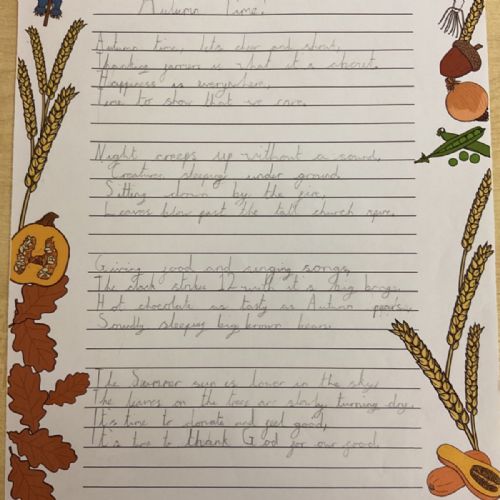 Autumn Time!
Autumn time, lets cheer and shout,
Thanking farmers is what it's about.
Happiness is everywhere,
Time to show that we care.
Night creeps up without a sound,
Creatures sleeping under ground.
Sitting down by the fire,
Leaves blow past the tall church spire.
Giving food and singing songs,
The clock strikes 12 with it's big bongs.
Hot chocolate as tasty as Autumn pears,
Soundly sleeping big brown bears.
The Summer sun is lower in the sky,
The leaves on the trees are slowly turning dry.
It's time to donate and feel good,
It's time to thank God for our food.